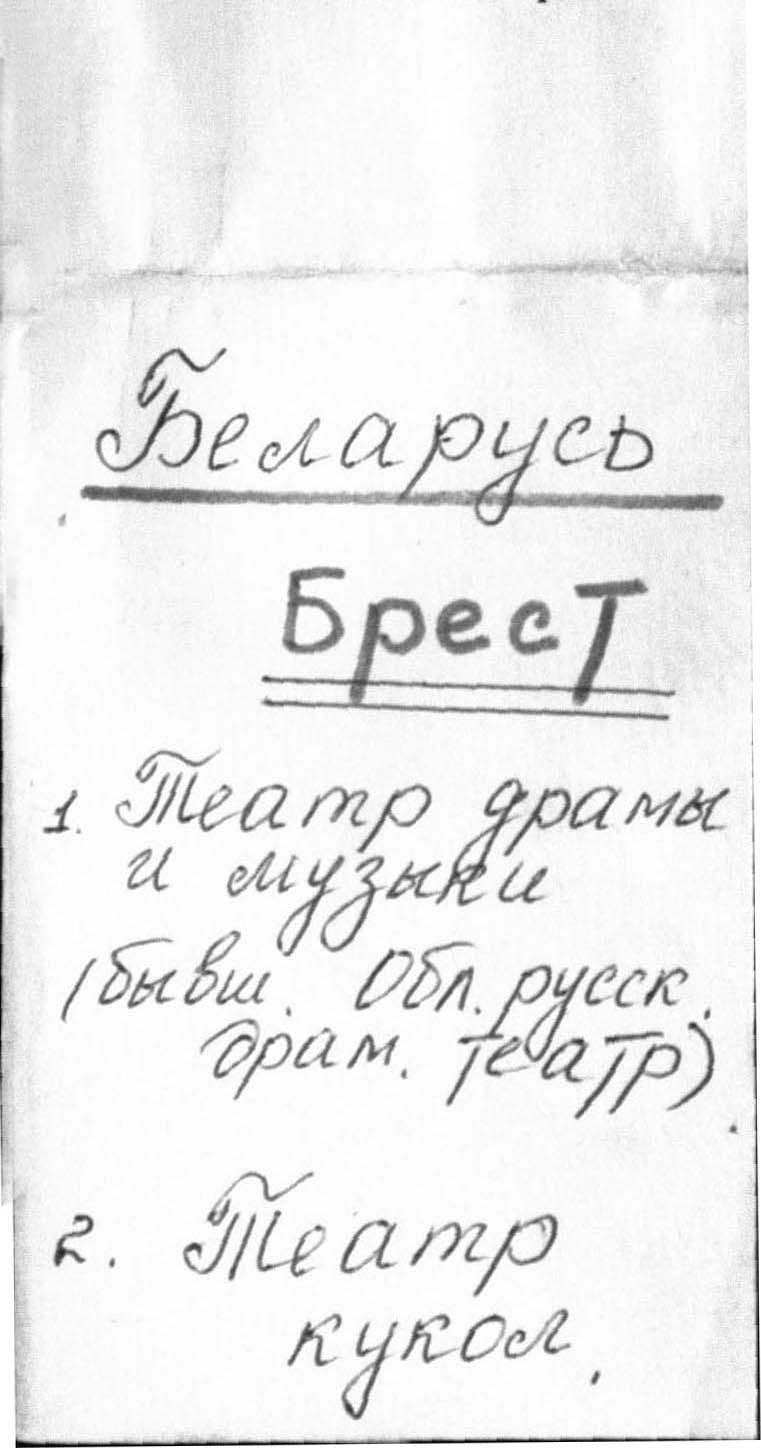 Беларусь
Брест
1. Театр драмы
и музыки
(бывш. Обл. русск.
драм. театр)
2. Театр
кукол.